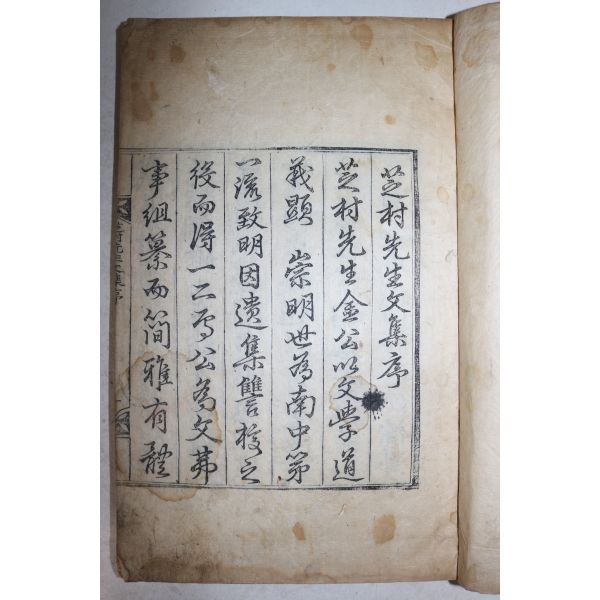 芝村先生文集序
芝村先生金公以文學道
義顯 崇明世為南中第
一流致明因遺集讐校之
役而得一二焉公為文弗
事組纂而簡雅有體
芝村先生文集序